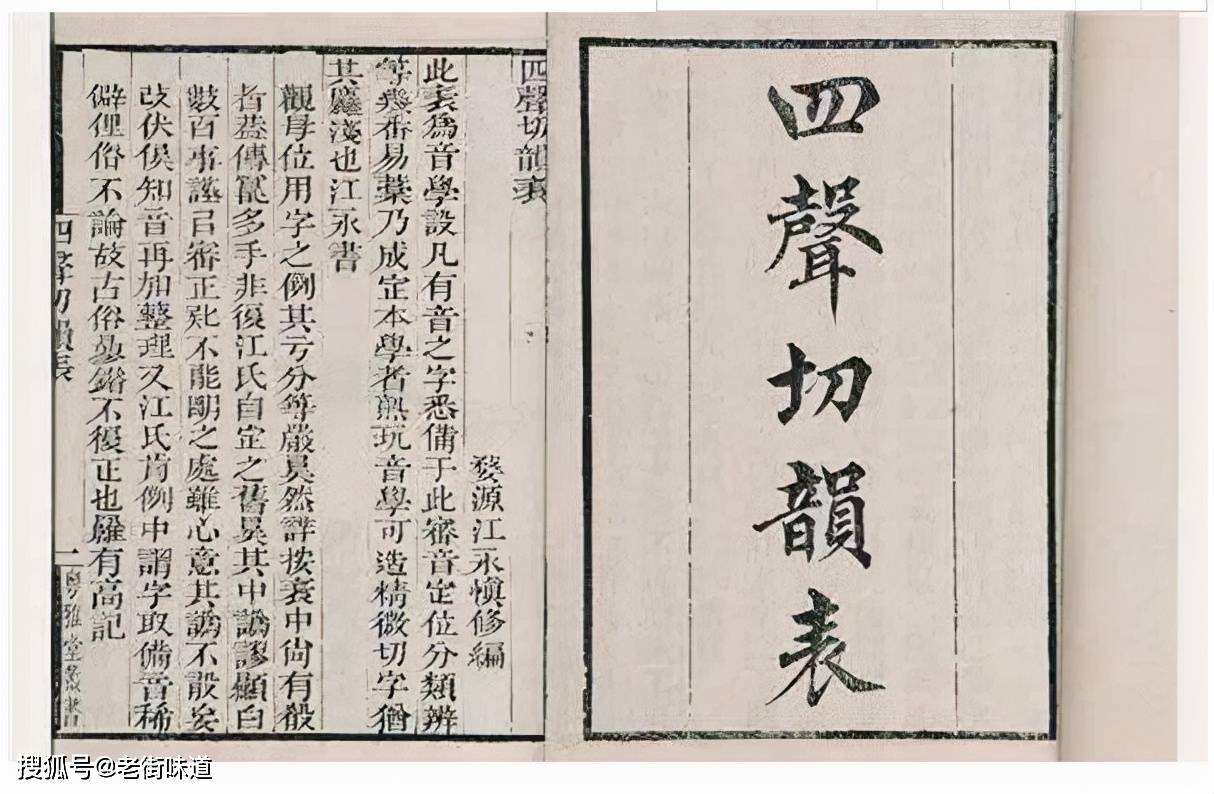 四聲切韻表
四聲切韻表
婺源江永慎修編
此表爲音學設凡有音之字悉備于此審音定位分類辨
等幾番易藁乃成定本學者熟玩音學可造精微切字猶
其麤淺也江永書
觀母位用字之例其亏分等嚴然詳按表中尙有
者葢傳多手非復江氏自定之舊其中譌謬顯白
數百事謹㠯審正不能朙之處雖心意其譌不敢妄
改伏俟知音再加整理又江氏例中謂字取備音稀
僻俚俗不論故古俗錯不復正也羅有高記
四聲切韻表
一
粵雅堂叢書
搜狐号@老街味道